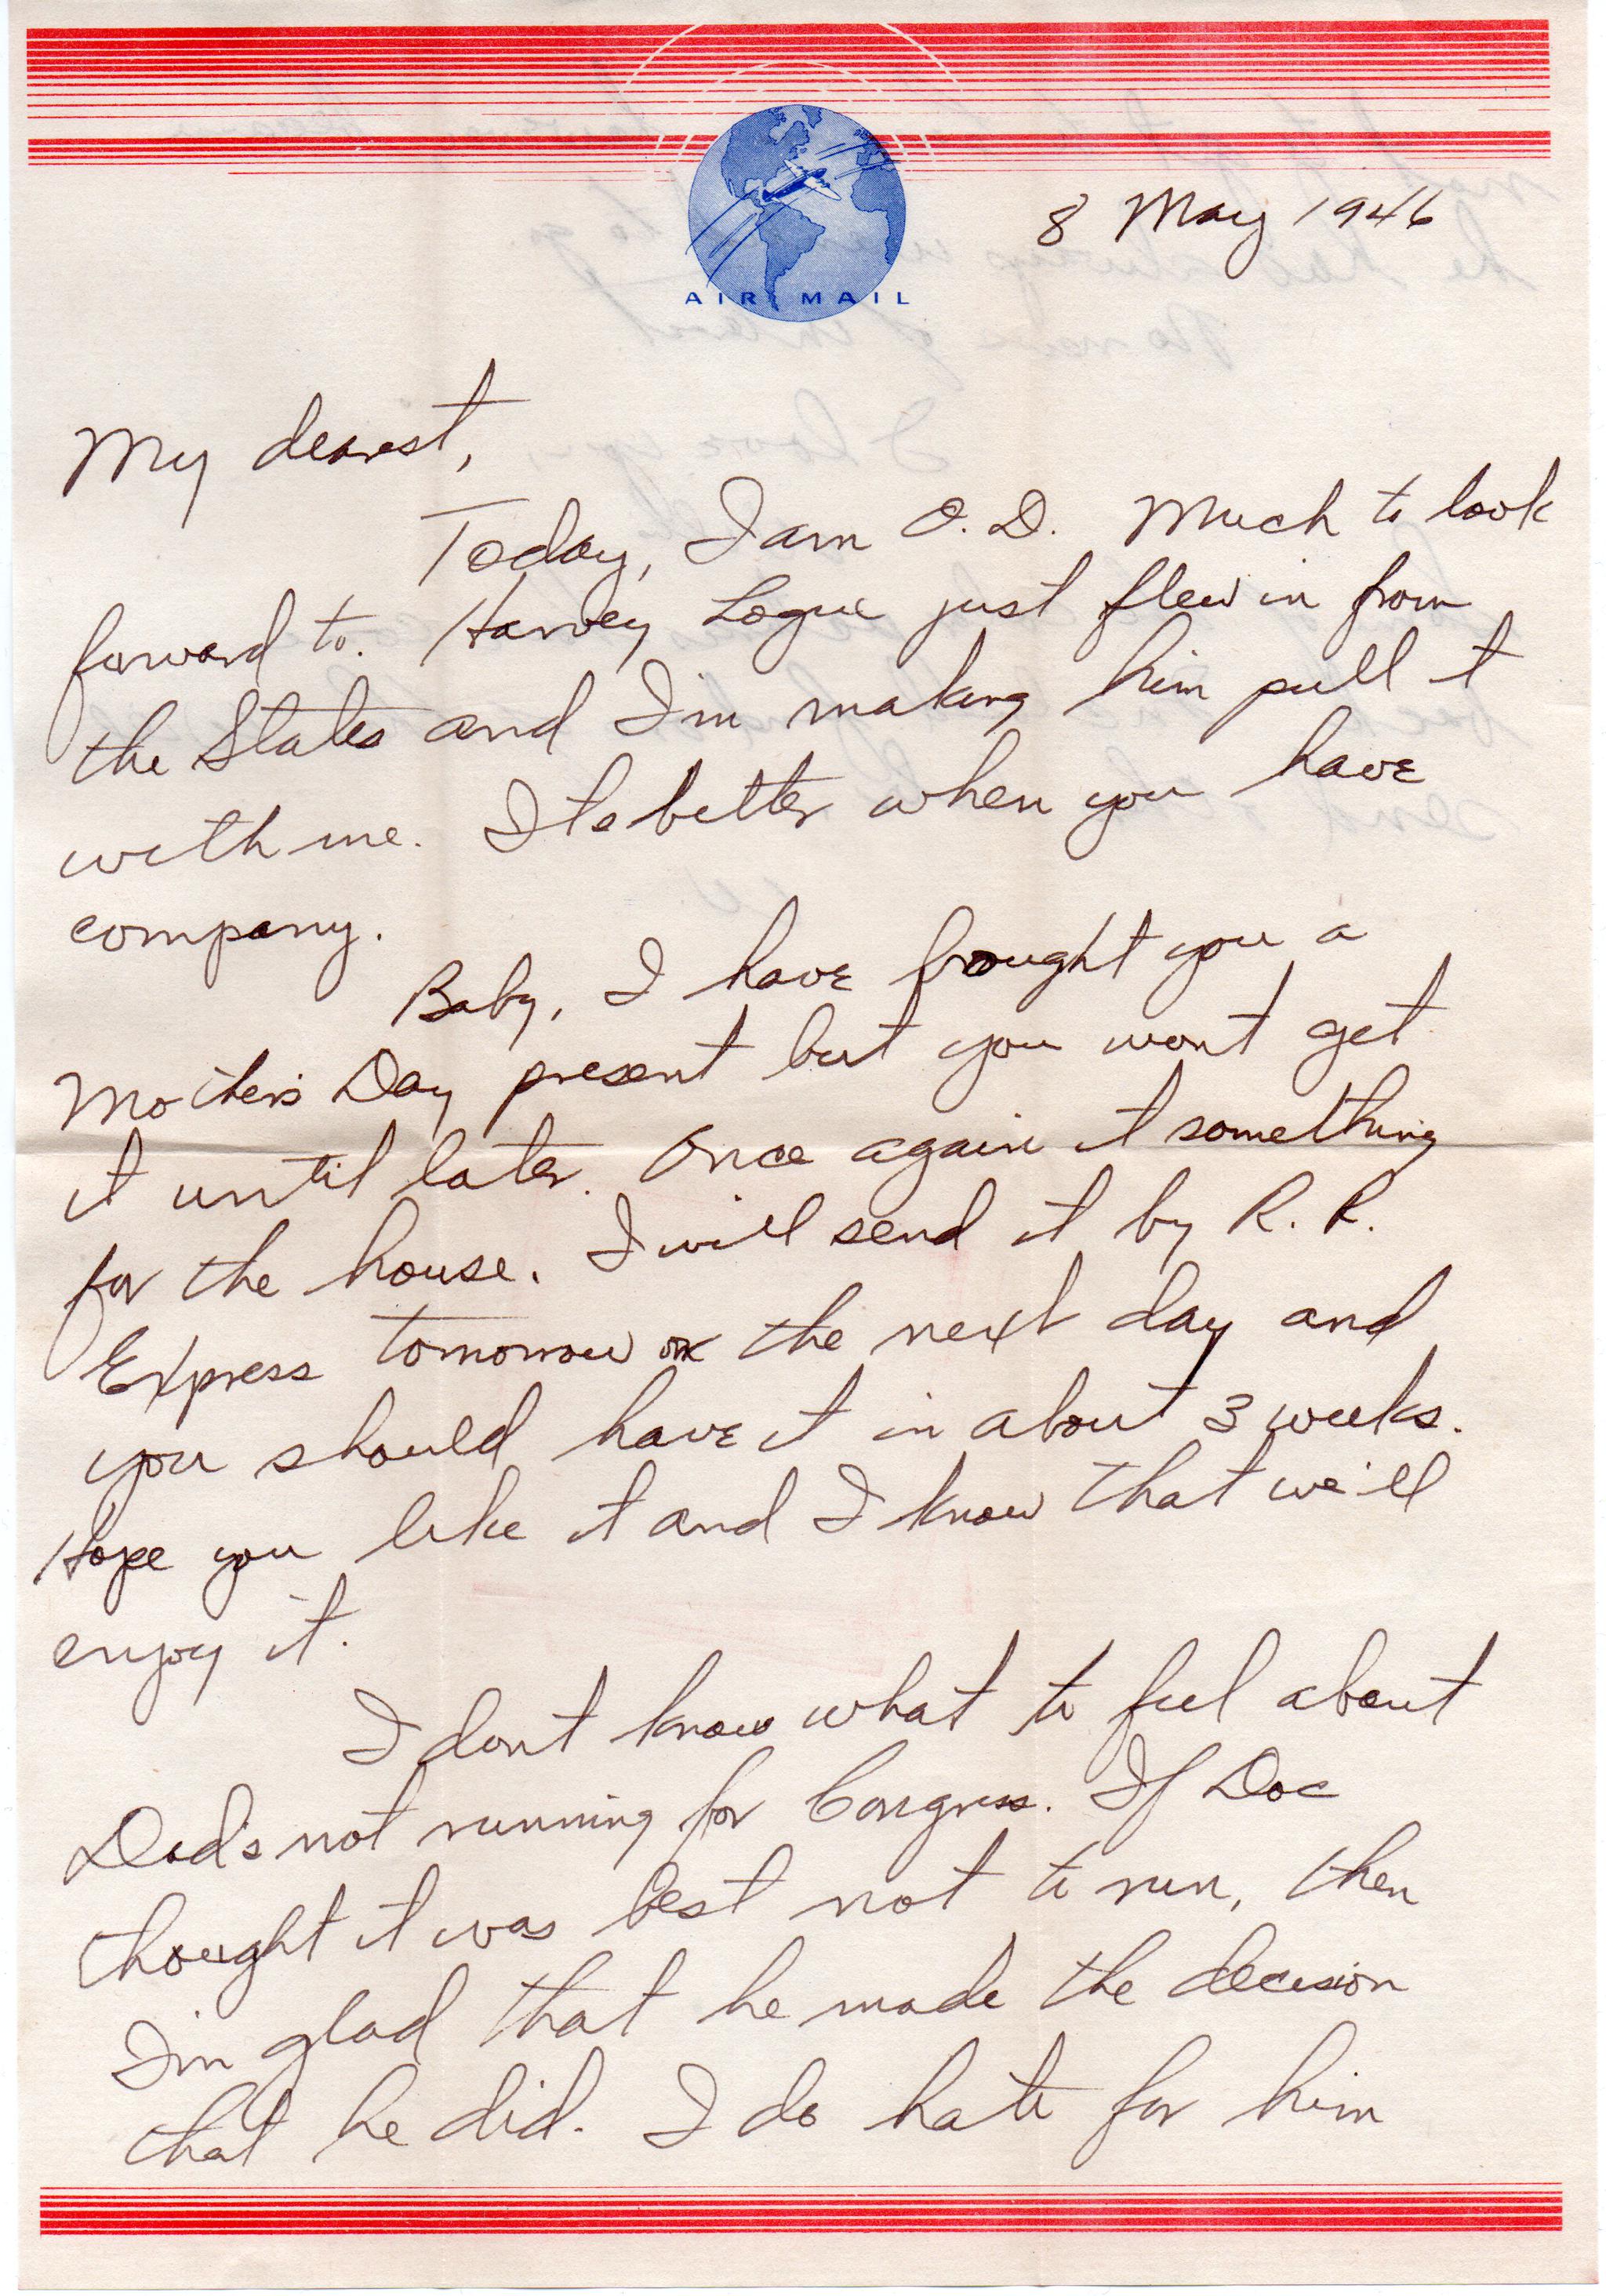 AIR MAIL
8 May 1946
My dearest,
Today, I am O.D. Much to look
forward to. Harvey Logue just flew in from
the States and I'm making him pull it
with me. Its better when you have
company.
Baby, I have brought you a
Mother's Day present but you wont get
it until later. Once again it something
for the house. I will send it by R. R.
Express tomorrow or the next day and
you should have it in about 3 weeks.
Hope you like it and I know that we'll
enjoy it.
I dont know what to feel about
Dad's not running for Congress. If Doc
thought it was best not to run, then
I'm glad that he made the decision
that he did. I do hate for him